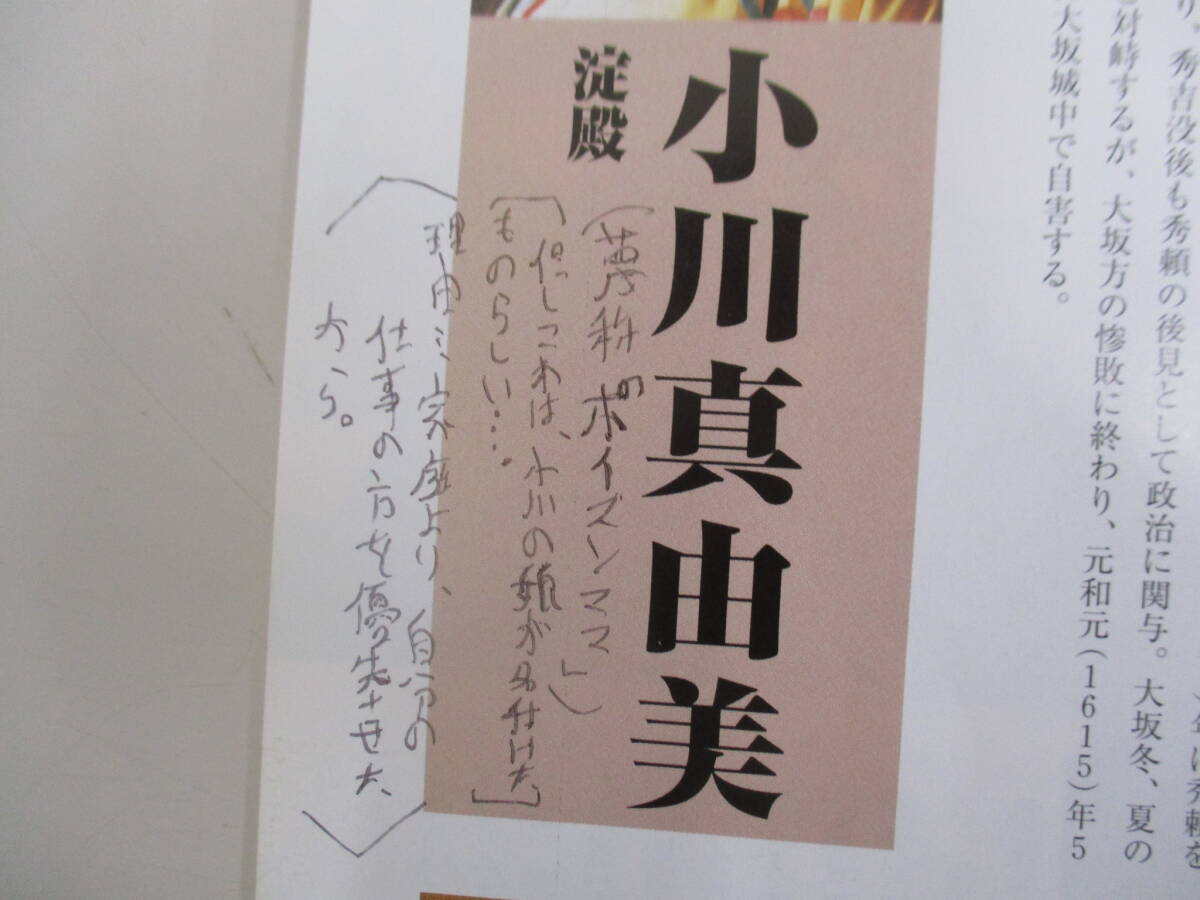 年は秀頼を
り。秀吉没後も秀頼の後見として政治に関与。大坂冬、夏の
対峙するが、大坂方の惨敗に終わり、元和元(1615)年5
大坂城中で自害する。
小川真由美
淀殿
(蔑称の「ポイズンママ」)
[但しこれは、小川の娘が名付けた、
ものらしい…。]
〈理由ミ家庭より、自分の
仕事の方を優先させた、
から。〉